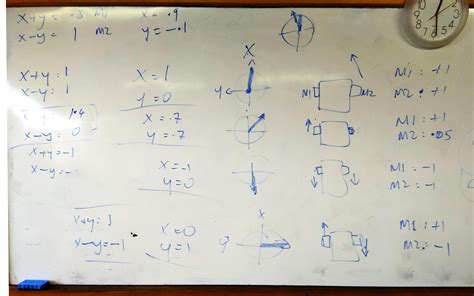 x+y = .8 M1 x = .9
x-y = 1 M2 y = -.1
x+y: 1 x = 1 X M1: +1
x-y: 1 y = 0 y M1 M2 M2: +1
1.4 x = .7 M1: +1
x-y: 0 y = .7 M2: .05
x+y = -1 x = -1 M1: -1
x-y: - y = 0 M2: -1
x+y: 1 x = 0 x M1: +1
x-y = -1 y = 1 y M2: -1
10
9
8
7
6
5
4